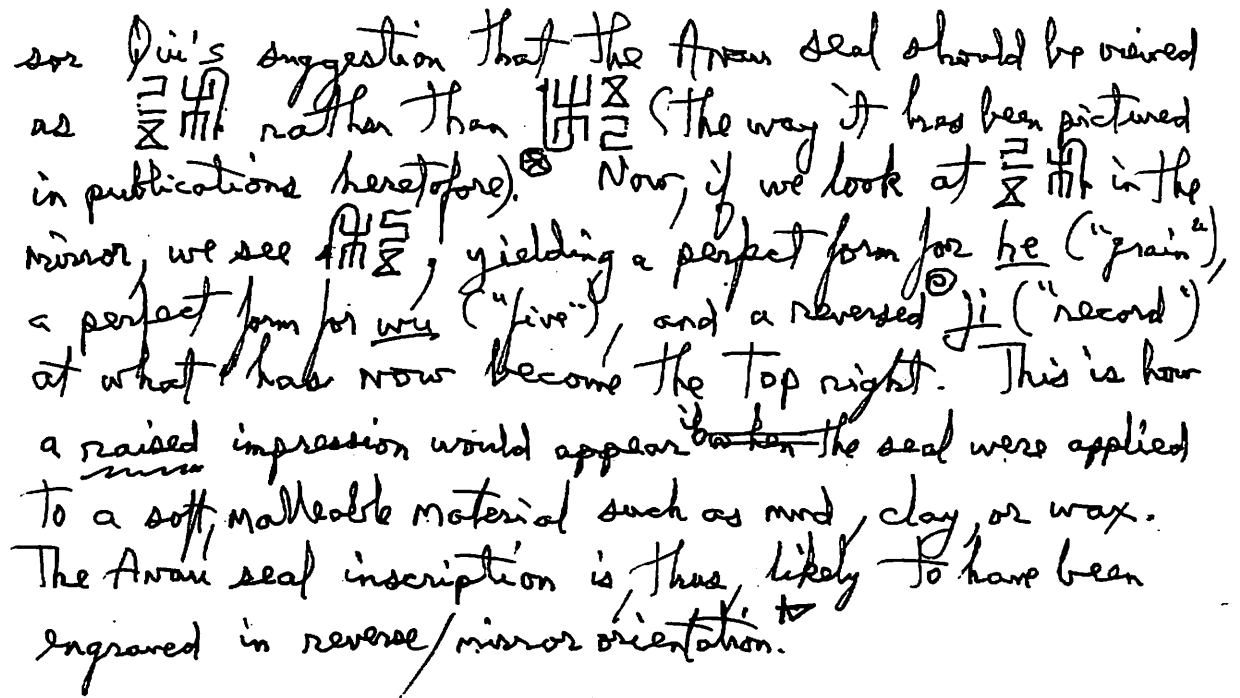 sor Qiu's suggestion that the Anau seal should be viewed
as rather than (the way it has been pictured
in publications heretofore). Now, if we look at in the
mirror, we see , yielding a perfect form for he ("grain"),
a perfect form for wu ("five"), and a reversed ji ("record")
at what has now become the top right. This is how
a raised impression would appear if the seal were applied
to a soft, malleable material such as mud, clay, or wax.
The Anau seal inscription is, thus, likely to have been
engraved in reverse/mirror orientation.